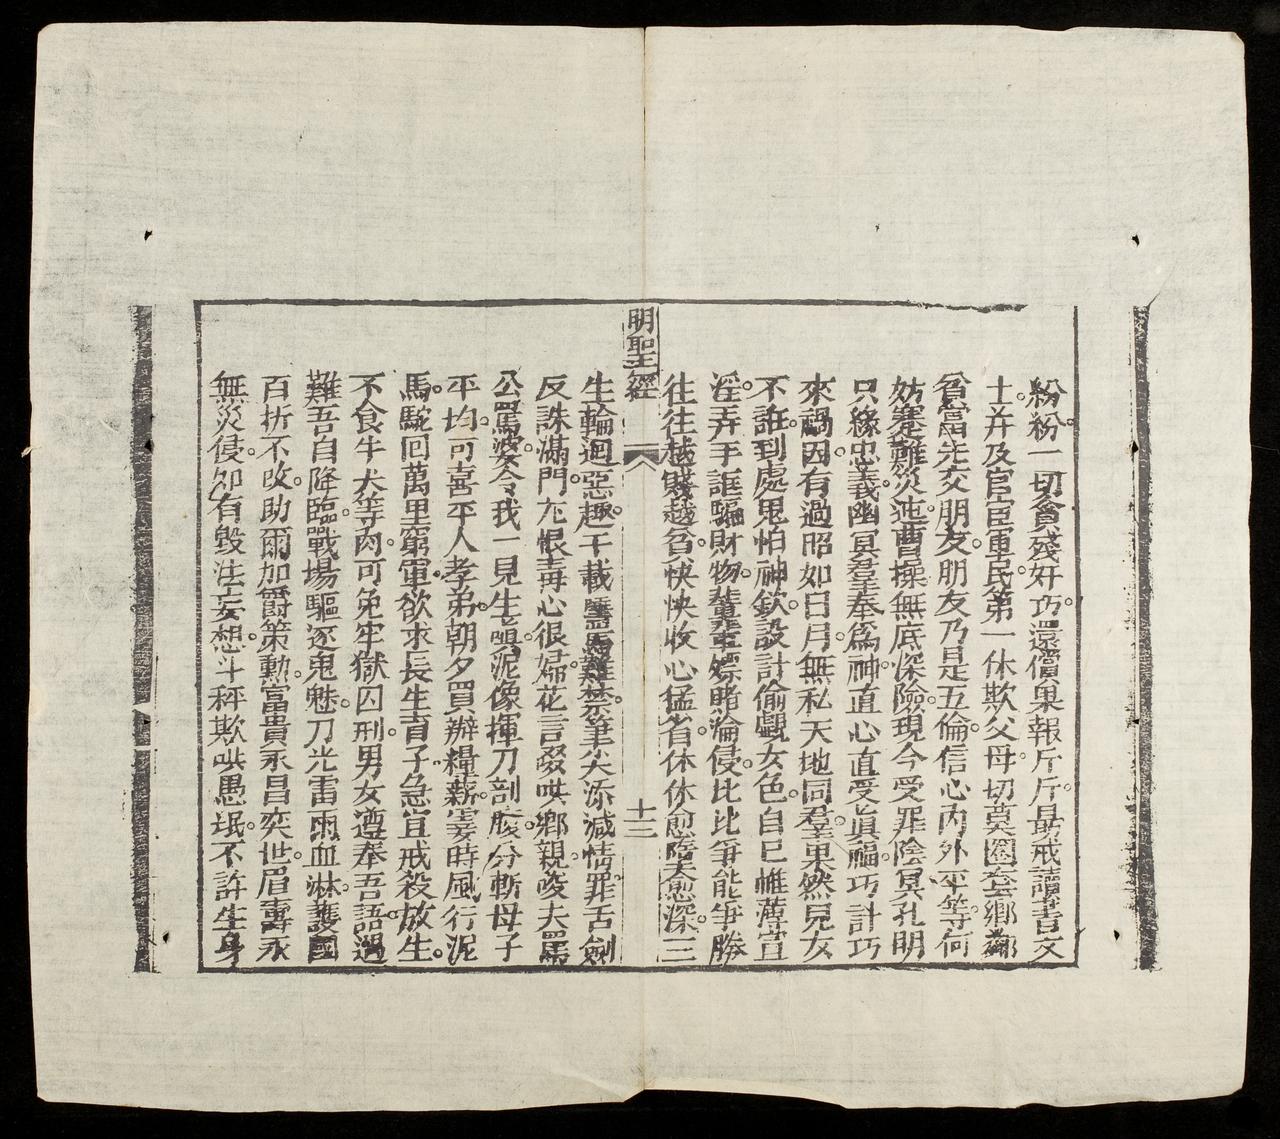 紛紛一切貪殘奸巧還價果報斤斤最戒讀書文
士并及官臣軍民第一休欺父母切莫圈套鄉鄰
貧富先交朋友朋友乃是五倫信心內外平等何
妨蹇難災迍曹操無底深險現今受罪陰冥孔明
只緣忠義幽冥羣奉為神直心直受真福巧計巧
來禍因有過昭如日月無私天地同羣果然兒女
不誑到處鬼怕神欽設計偷覷女色自己帷薄宣
淫弄手誆騙財物輩輩嫖賭淪侵比比爭能爭勝
往往越賤越貧快快收心猛省休休愈墮愈深三
明聖經
十三
生輪迴惡趣千載馬難禁筆尖添減情罪舌劍
反誅滿門尤恨毒心很婦花言啜哄鄉親唆夫罵
公罵婆令我一見生嗔泥像揮刀剖腹分斬母子
平均可喜平人孝弟朝夕買辦糧薪霎時風行泥
馬駝回萬里窮軍欲求長生育子急宜戒殺放生
不食牛犬等肉可免牢獄囚刑男女遵奉吾語遇
難吾自降臨戰場驅逐鬼魅刀光雷雨血淋護國
百折不改助爾加爵策勳富貴永昌奕世眉壽永
無災侵卻有毀法妄想斗秤欺哄愚氓不許生身